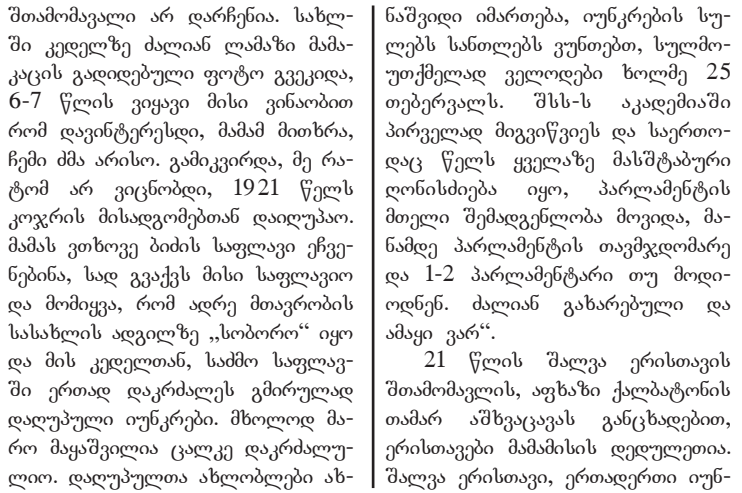 შთამომავალი არ დარჩენია. სახლ-
ში კედელზე ძალიან ლამაზი მამა-
კაცის გადიდებული ფოტო გვეკიდა,
6-7 წლის ვიყავი მისი ვინაობით
რომ დავინტერესდი, მამამ მითხრა,
ჩემი ძმა არისო. გამიკვირდა, მე რა-
ტომ არ ვიცნობდი, 1921 წელს
კოჯრის მისადგომებთან დაიღუპაო.
მამას ვთხოვე ბიძის საფლავი ეჩვე-
ნებინა, სად გვაქვს მისი საფლავიო
და მომიყვა, რომ ადრე მთავრობის
სასახლის ადგილზე „სობორო“ იყო
და მის კედელთან, საძმო საფლავ-
ში ერთად დაკრძალეს გმირულად
დაღუპული იუნკრები. მხოლოდ მა-
რო მაყაშვილია ცალკე დაკრძალუ-
ლიო. დაღუპულთა ახლობლები ახ-
ნაშვიდი იმართება, იუნკრების სუ-
ლებს სანთლებს ვუნთებთ, სულმო-
უთქმელად ველოდები ხოლმე 25
თებერვალს. შსს-ს აკადემიაში
პირველად მიგვიწვიეს და საერთო-
დაც წელს ყველაზე მასშტაბური
ღონისძიება იყო, პარლამენტის
მთელი შემადგენლობა მოვიდა, მა-
ნამდე პარლამენტის თავმჯდომარე
და 1-2 პარლამენტარი თუ მოდი-
ოდნენ. ძალიან გახარებული და
ამაყი ვარ“.
21 წლის შალვა ერისთავის
შთამომავლის, აფხაზი ქალბატონის
თამარ აშხვაცავას განცხადებით,
ერისთავები მამამისის დედულეთია.
შალვა ერისთავი, ერთადერთი იუნ-